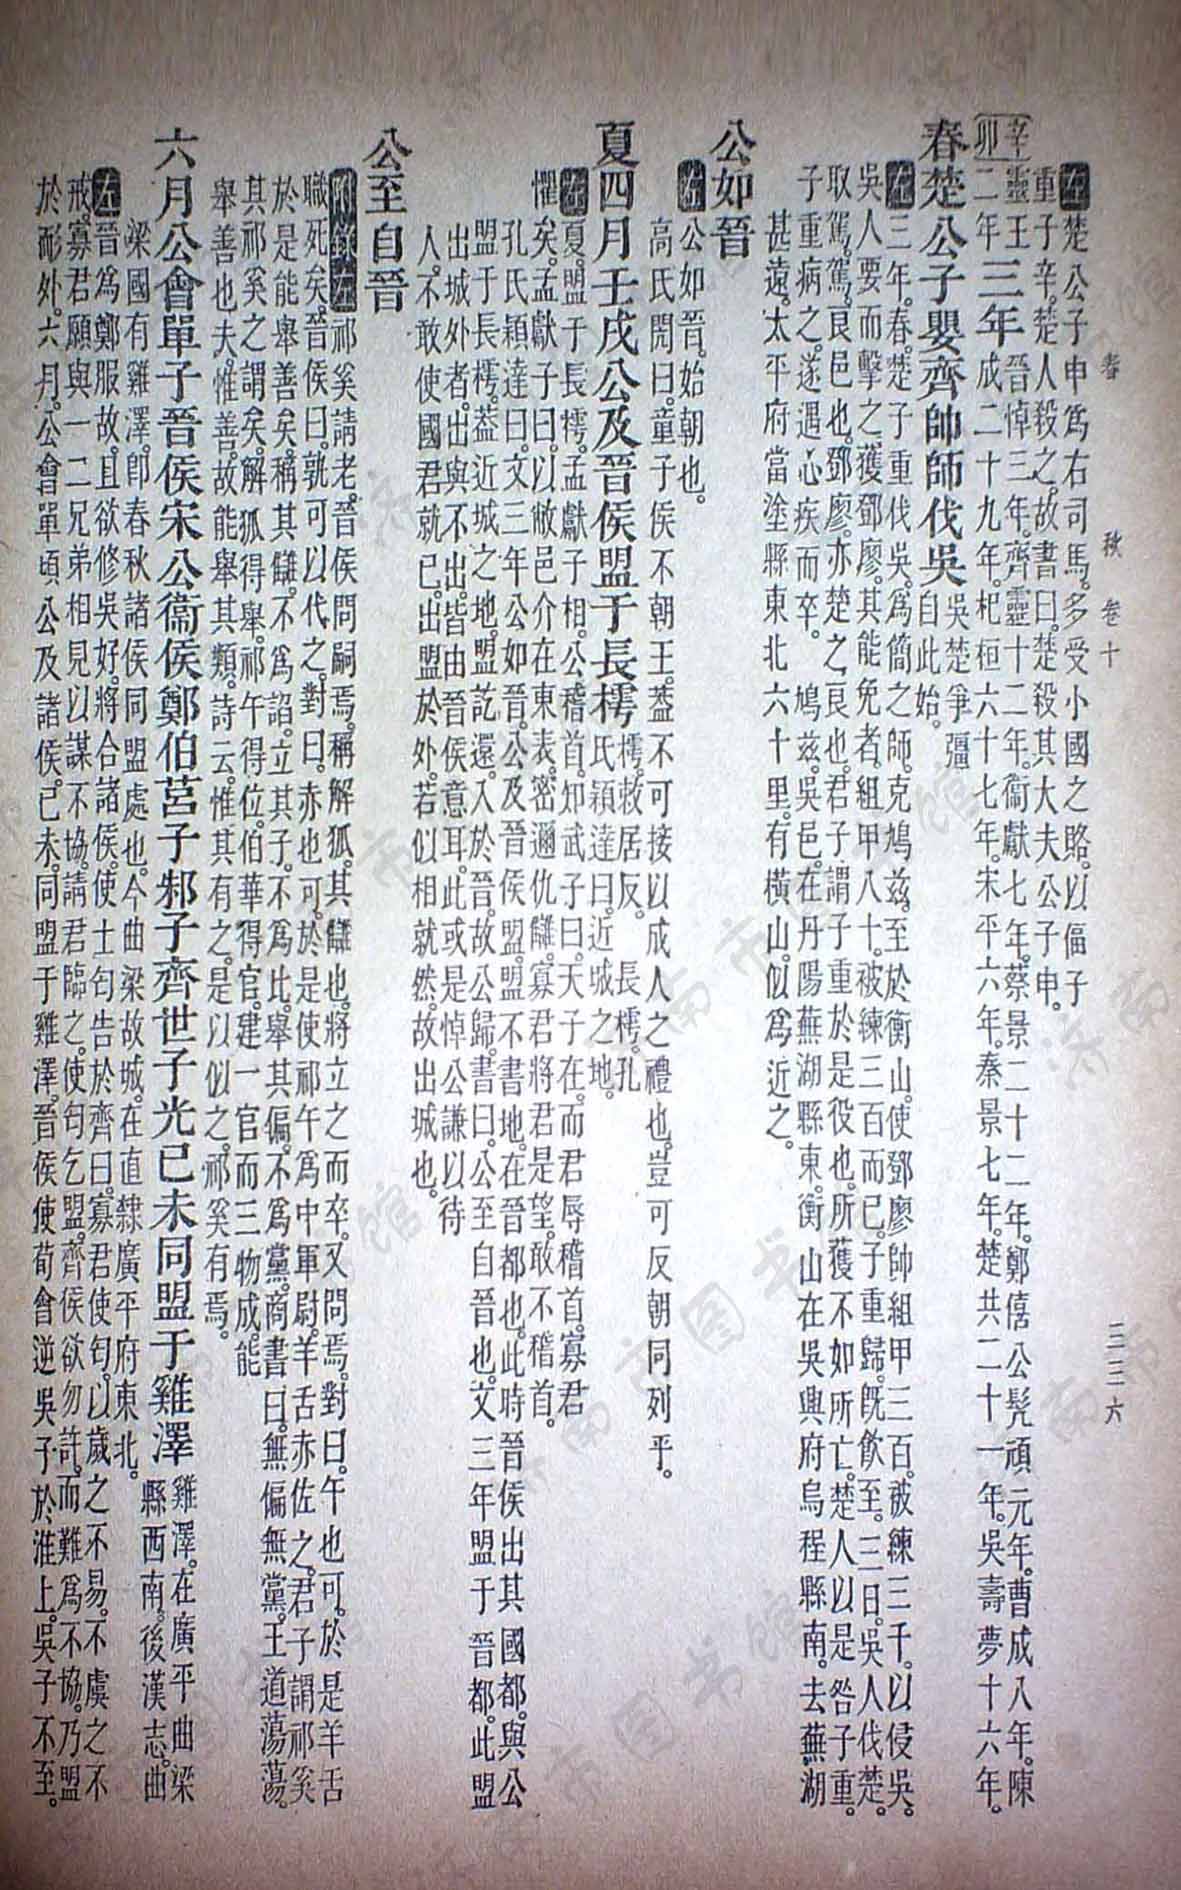 春 秋 卷十 三三六
左楚公子申爲右司馬。多受小國之賂。以偪子
重子辛。楚人殺之。故書曰。楚殺其大夫公子申。
辛卯 靈王二年 三年 晉悼三年。齊靈十二年。衞獻七年。蔡景二十二年。鄭僖公髡頑元年。曹成八年。陳
成二十九年。杞桓六十七年。宋平六年。秦景七年。楚共二十一年。吳壽夢十六年。
春楚公子嬰齊帥師伐吳 吳楚爭彊
自此始。
左三年。春。楚子重伐吳。爲簡之師。克鳩兹。至於衡山。使鄧廖帥組甲三百。被練三千。以侵吳。
吳人要而擊之。獲鄧廖。其能免者。組甲八十。被練三百而已。子重歸。旣飮至。三日。吳人伐楚。
取駕。駕良邑也。鄧廖。亦楚之良也。君子謂子重於是役也。所獲不如所亡。楚人以是咎子重。
子重病之。遂遇心疾而卒。 鳩兹。吳邑。在丹陽蕪湖縣東。衡山在吳興府烏程縣南。去蕪湖
甚遠。太平府當塗縣東北六十里。有橫山。似爲近之。
公如晉
左公如晉。始朝也。
高氏閌曰。童子侯不朝王。葢不可接以成人之禮也。豈可反朝同列乎。
夏四月壬戌公及晉侯盟于長樗 樗。敕居反。 長樗。孔
氏穎達曰。近城之地。
左夏。盟于長樗。孟獻子相。公稽首。知武子曰。天子在。而君辱稽首。寡君
懼矣。孟獻子曰。以敝邑介在東表。密邇仇讎。寡君將君是望。敢不稽首。
孔氏穎達曰。文三年公如晉。公及晉侯盟。盟不書地。在晉都也。此時晉侯出其國都。與公
盟于長樗。葢近城之地。盟訖還。入於晉。故公歸。書曰。公至自晉也。文三年盟于晉都。此盟
出城外者。出與不出。皆由晉侯意耳。此或是悼公謙以待
人。不敢使國君就已。出盟於外。若似相就然。故出城也。
公至自晉
附錄左祁奚請老。晉侯問嗣焉。稱解狐。其讎也。將立之而卒。又問焉。對曰。午也可。於是羊舌
職死矣。晉侯曰。孰可以代之。對曰。赤也可。於是使祁午爲中軍尉。羊舌赤佐之。君子謂祁奚
於是能舉善矣。稱其讎。不爲諂。立其子。不爲比。舉其偏。不爲黨。商書曰。無偏無黨。王道蕩蕩。
其祁奚之謂矣。解狐得舉。祁午得位。伯華得官。建一官而三物成。能
舉善也夫。惟善。故能舉其類。詩云。惟其有之。是以似之。祁奚有焉。
六月公會單子晉侯宋公衞侯鄭伯莒子邾子齊世子光己未同盟于雞澤 雞澤。在廣平曲梁
縣西南。後漢志。曲
梁國有雞澤。卽春秋諸侯同盟處也。今曲梁故城。在直隸廣平府東北。
左晉爲鄭服故。且欲修吳好。將合諸侯。使士匄告於齊曰。寡君使匄。以歲之不易。不虞之不
戒。寡君願與一二兄弟相見。以謀不協。請君臨之。使匄乞盟。齊侯欲勿許。而難爲不協。乃盟
於耏外。六月。公會單頃公及諸侯。己未。同盟于雞澤。晉侯使荀會逆吳子於淮上。吳子不至。